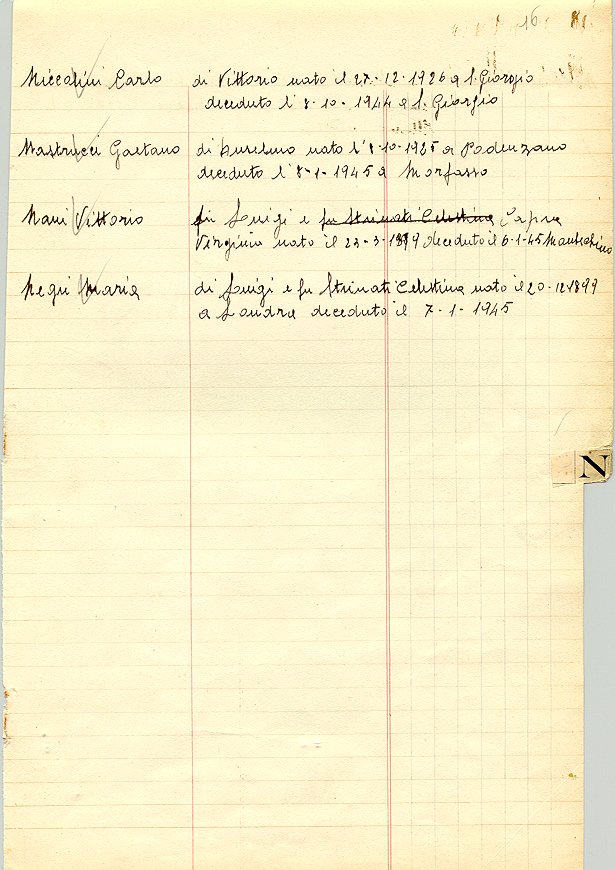 16
Niccolini Carlo di Vittorio nato il 27-12-1926 a S. Giorgio
deceduto l'8-10-1944 a S. Giorgio
Mastrucci Gaetano di Anselmo nato l'8-10-1925 a Podenzano
deceduto l'8-1-1945 a Morfasso
Nani Vittorio fu Luigi e fu Strinati Celestina Capra
Virginia nato il 23-3- deceduto il 6-1-45
Negri Maria di Luigi e fu Strinati Celestina nato il 20-12-1899
a deceduto il 7-1-1945
N